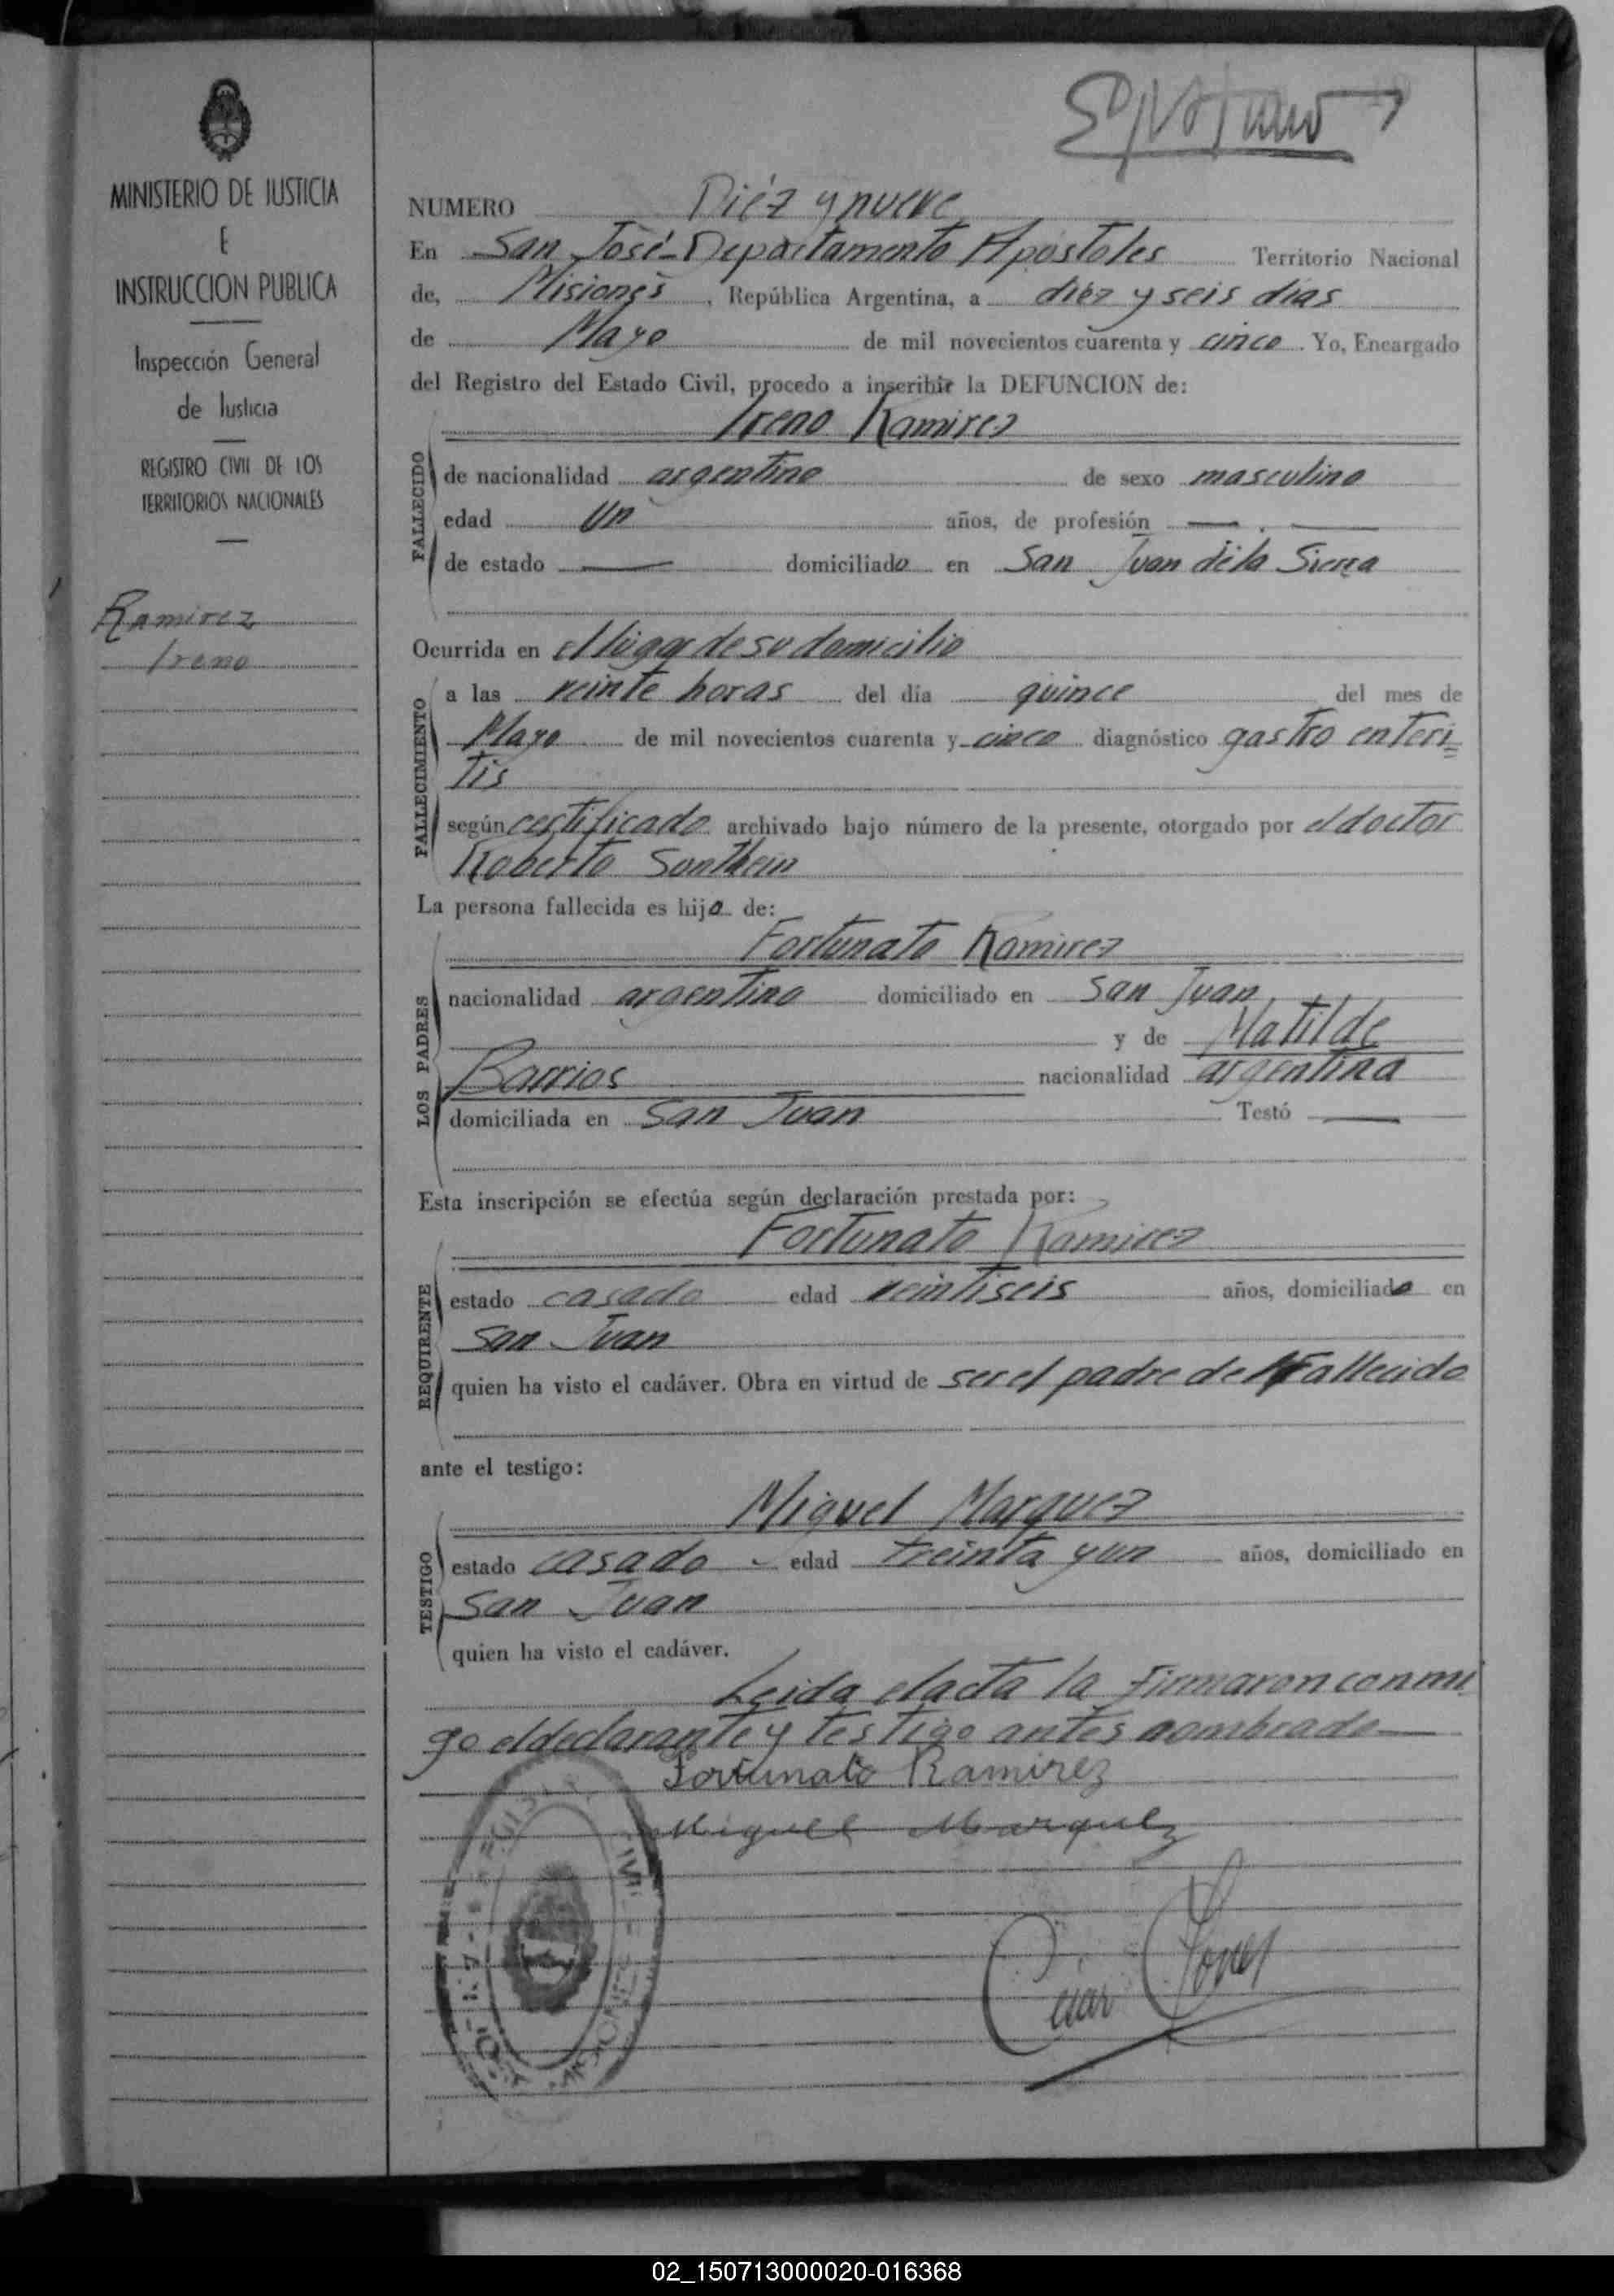 MINISTERIO DE JUSTICIA
E
INSTRUCCION PUBLICA
Inspección General
de Justicia
REGISTRO CIVIL DE LOS
TERRITORIOS NACIONALES
Ramirez
Ireno
NUMERO Diéz y nueve
En San José-Departamento Apóstoles Territorio Nacional
de, Misiones, República Argentina, a diéz y seis días
de Mayo de mil novecientos cuarenta y cinco. Yo, Encargado
del Registro del Estado Civil, procedo a inscribir la DEFUNCION de:
Ireno Ramirez
FALLECIDO
de nacionalidad argentino de sexo masculino
edad Un años, de profesión —.—
de estado — domiciliado en San Juan de la Sierra
Ocurrida en el lugar de su domicilio
FALLECIMIENTO
a las veinte horas del día quince del mes de
Mayo de mil novecientos cuarenta y cinco diagnóstico gastro enteri=
tis
según certificado archivado bajo número de la presente, otorgado por el doctor
Roberto
La persona fallecida es hijo de:
Fortunato Ramirez
LOS PADRES
nacionalidad argentino domiciliado en San Juan
y de Matilde
Barrios nacionalidad argentina
domiciliada en San Juan Testó —
Esta inscripción se efectúa según declaración prestada por:
Fortunato Ramirez
REQUIRENTE
estado casado edad veintiseis años, domiciliado en
San Juan
quien ha visto el cadáver. Obra en virtud de ser el padre del Fallecido
ante el testigo:
Miguel Marquez
TESTIGO
estado casado edad treinta y un años, domiciliado en
San Juan
quien ha visto el cadáver.
Leida el acta la firmaron conmi
go el declarante y testigo antes nombrado—
Fortunato Ramirez
Miguel Marquez
02_150713000020-016368